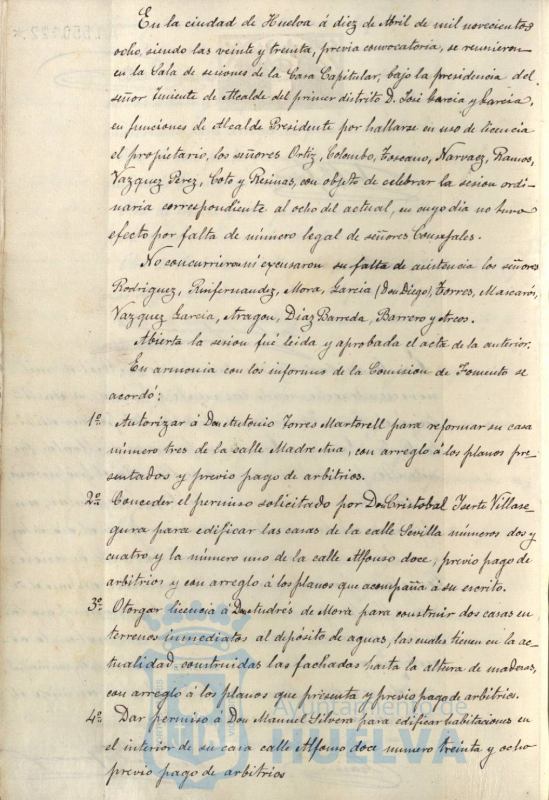 En la ciudad de Huelva á diez de Abril de mil novecientos
ocho, siendo las veinte y treinta, previa convocatoria, se reunieron
en la Sala de sesiones de la Casa Capitular, bajo la presidencia del
señor Teniente de Alcalde del primer distrito D. José Garcia y Garcia,
en funciones de Alcalde Presidente por hallarse en uso de licencia
el propietario, los señores Ortiz, Colombo, Toscano, Narvaez, Ramos,
Vazquez Perez, Coto y Reinas, con objeto de celebrar la sesion ordi-
naria correspondiente al ocho del actual, en cuyo dia no tuvo
efecto por falta de número legal de señores Concejales.
No concurrieron ni excusaron su falta de asistencia los señores
Rodriguez, Ruifernandez, Mora, Garcia (Don Diego), Torres, Mascarós,
Vazquez Garcia, Aragon, Diaz Barreda, Barrero y Arcos.
Abierta la sesion fué leida y aprobada el acta de la anterior.
En armonia con los informes de la Comision de Fomento se
acordó:
1º Autorizar á Don Antonio Torres Martorell para reformar su casa
número tres de la calle Madre Ana, con arreglo á los planos pre-
sentados y previo pago de arbitrios.
2º Conceder el permiso solicitado por Don Cristobal Iserte Villase-
gura para edificar las casas de la calle Sevilla números dos y
cuatro y la número uno de la calle Alfonso doce, previo pago de
arbitrios y con arreglo á los planos que acompaña á su escrito.
3º Otorgar licencia á Don Andrés de Mora para construir dos casas en
terrenos inmediatos al depósito de aguas, las cuales tienen en la ac-
tualidad construidas las fachadas hasta la altura de maderas,
con arreglo á los planos que presenta y previo pago de arbitrios.
4º Dar permiso á Don Manuel Silvera para edificar habitaciones en
el interior de su casa calle Alfonso doce numero treinta y ocho
previo pago de arbitrios
Ayuntamiento de
HUELVA